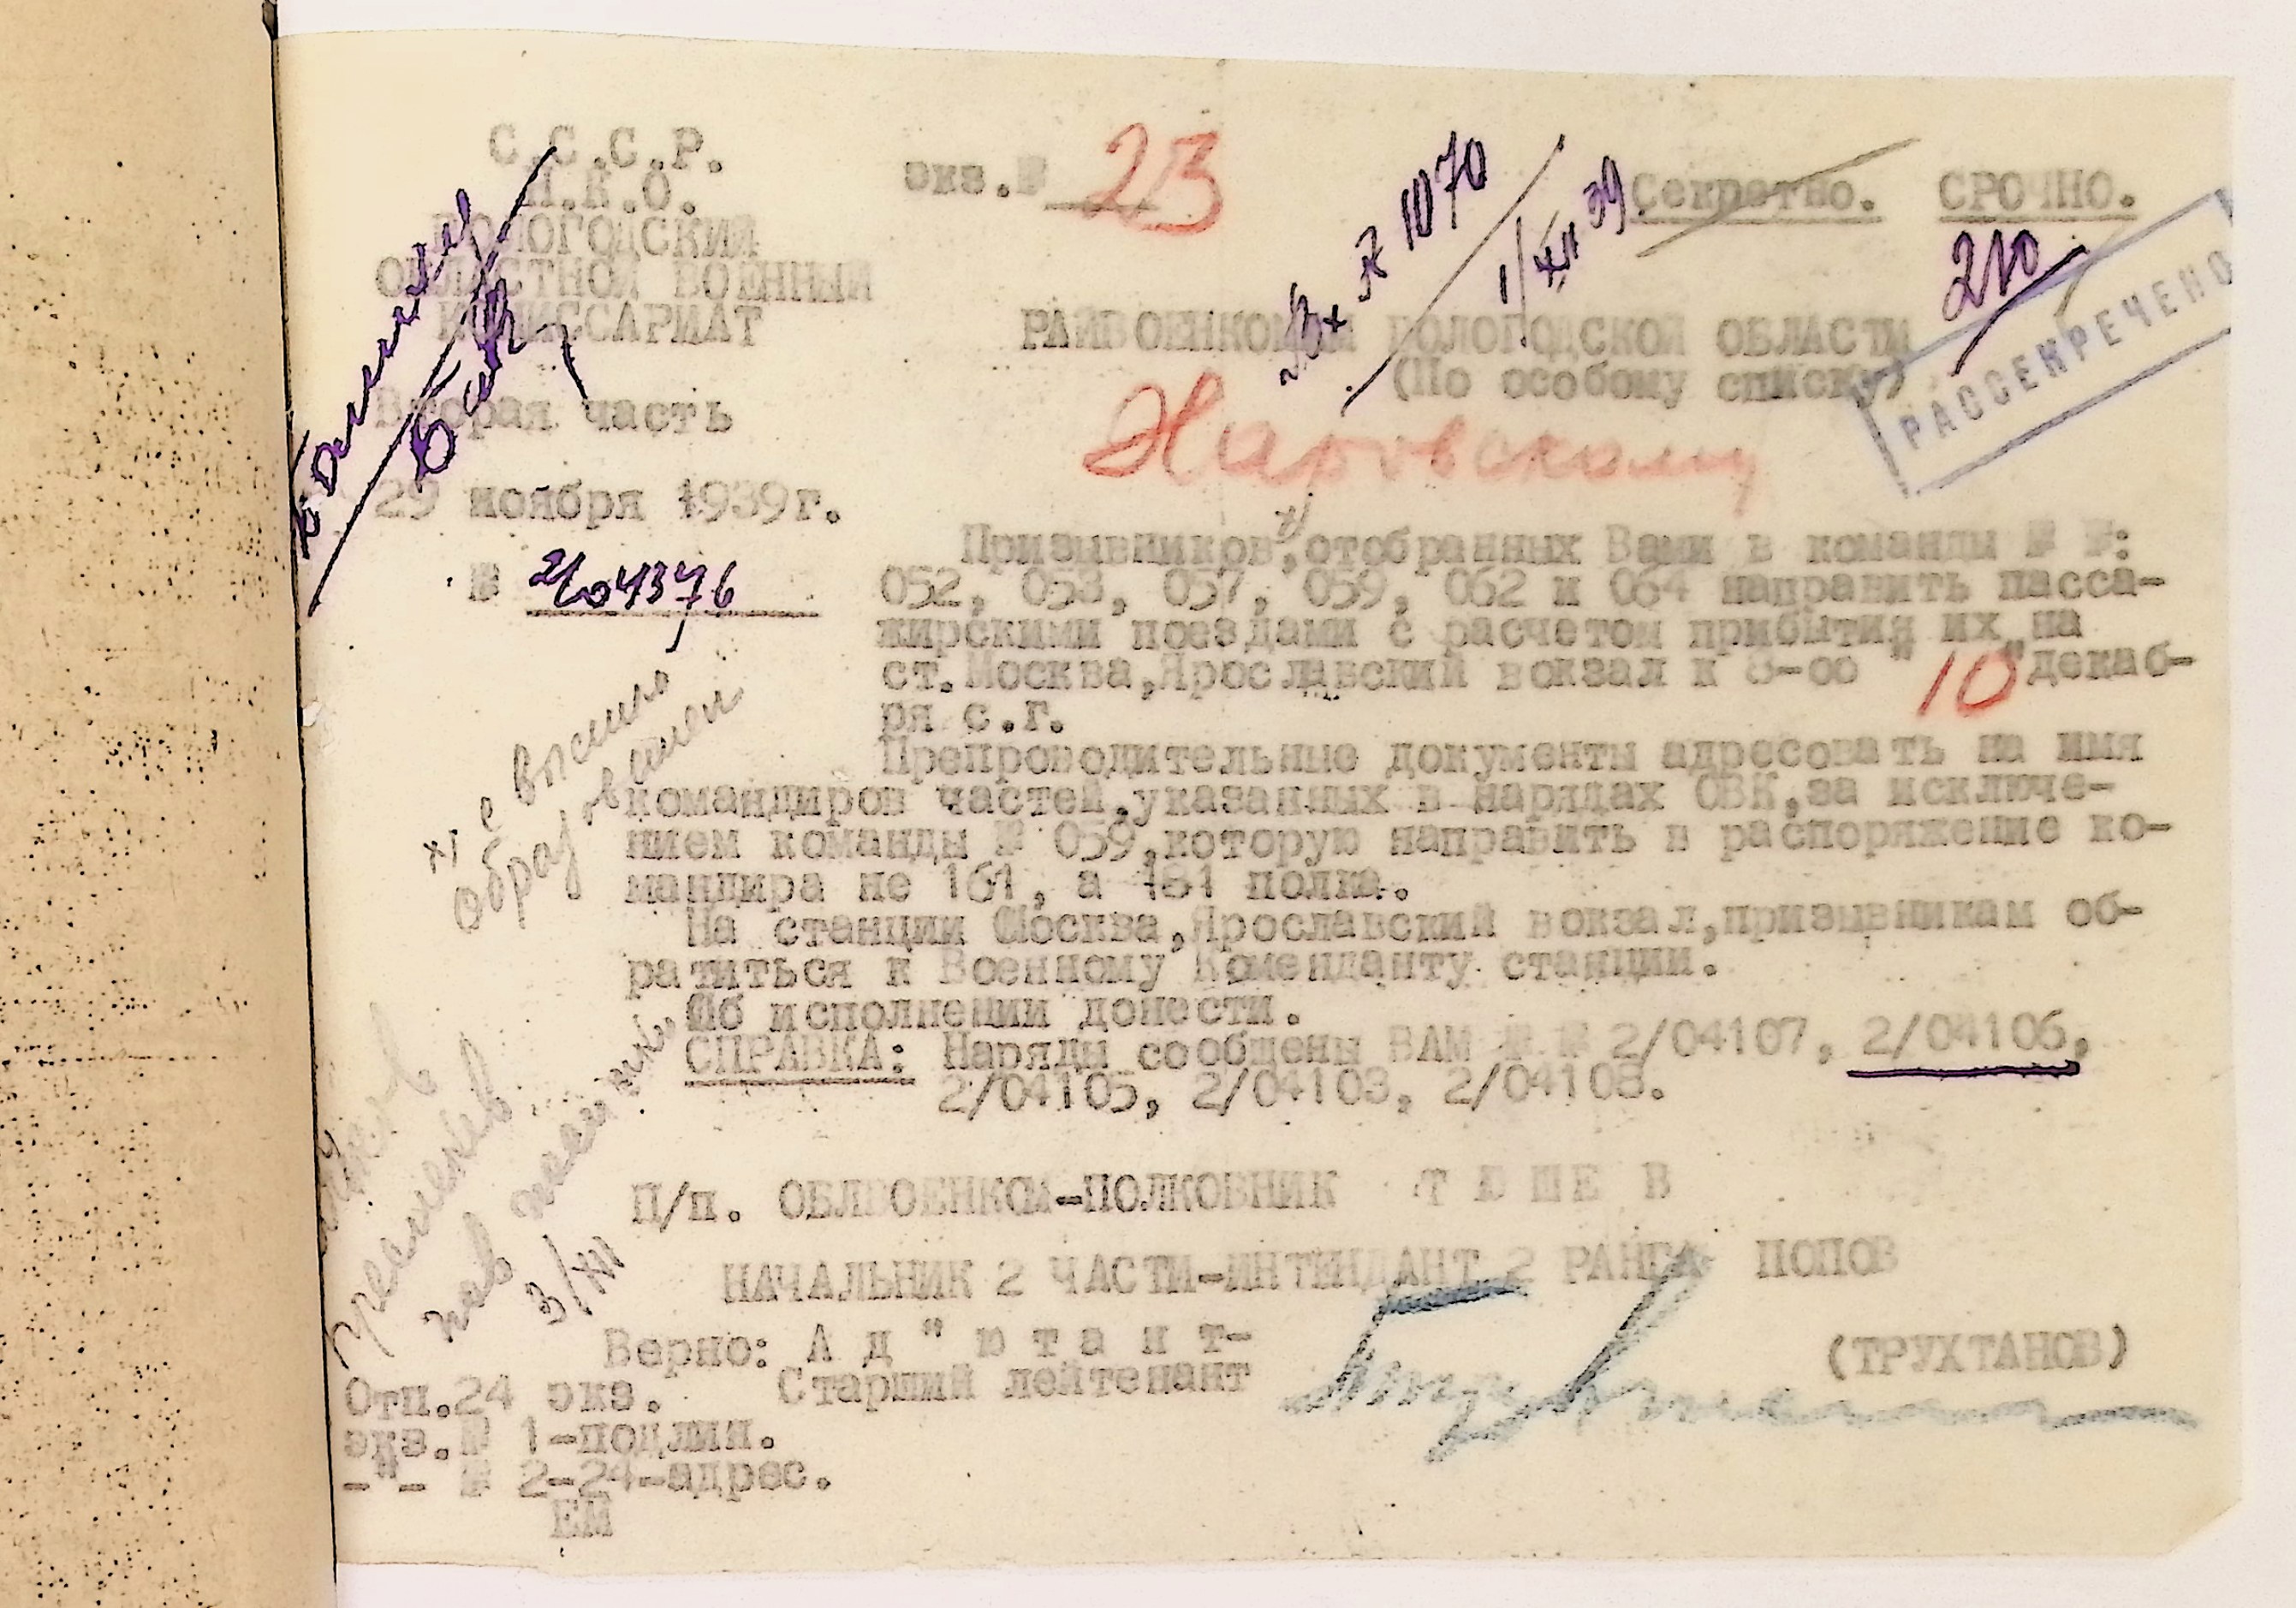 С.С.С.Р.
Н.К.О.
ВОЛОГОДСКИЙ
ОБЛАСТНОЙ ВОЕННЫЙ
КОМИССАРИАТ
Вторая часть
29 ноября 1939г.
№ 2/04376
экз.№ 23
Вх № 1070
1/XII 39
Секретно. СРОЧНО.
210
РАССЕКРЕЧЕНО
РАЙВОЕНКОМАМ ВОЛОГОДСКОЙ ОБЛАСТИ
(По особому списку)
Призывников х/, отобранных Вами в команды № №:
052, 053, 057, 059, 062 и 064 направить пасса-
жирскими поездами с расчетом прибытия их на
ст.Москва,Ярославский вокзал к 8-00 "10"декаб-
ря с.г.
Препроводительные документы адресовать на имя
командиров частей,указанных в нарядах ОВК,за исключе-
нием команды № 059,которую направить в распоряжение ко-
мандира не 161, а 151 полка.
На станции Москва,Ярославский вокзал,призывникам об-
ратиться к Военному Коменданту станции.
Об исполнении донести.
СПРАВКА: Наряды сообщены ВАМ № № 2/04107, 2/04106,
2/04105, 2/04103, 2/04108.
х/ с высшим
образованием
3/XII
П/п. ОБЛВОЕНКОМ-ПОЛКОВНИК
НАЧАЛЬНИК 2 ЧАСТИ-ИНТЕНДАНТ 2 РАНГА ПОПОВ
Верно: А д " ю т а н т-
Старший лейтенант (ТРУХТАНОВ)
Отп.24 экз.
экз.№ 1-подлин.
-"- № 2-24-адрес.
ЕМ